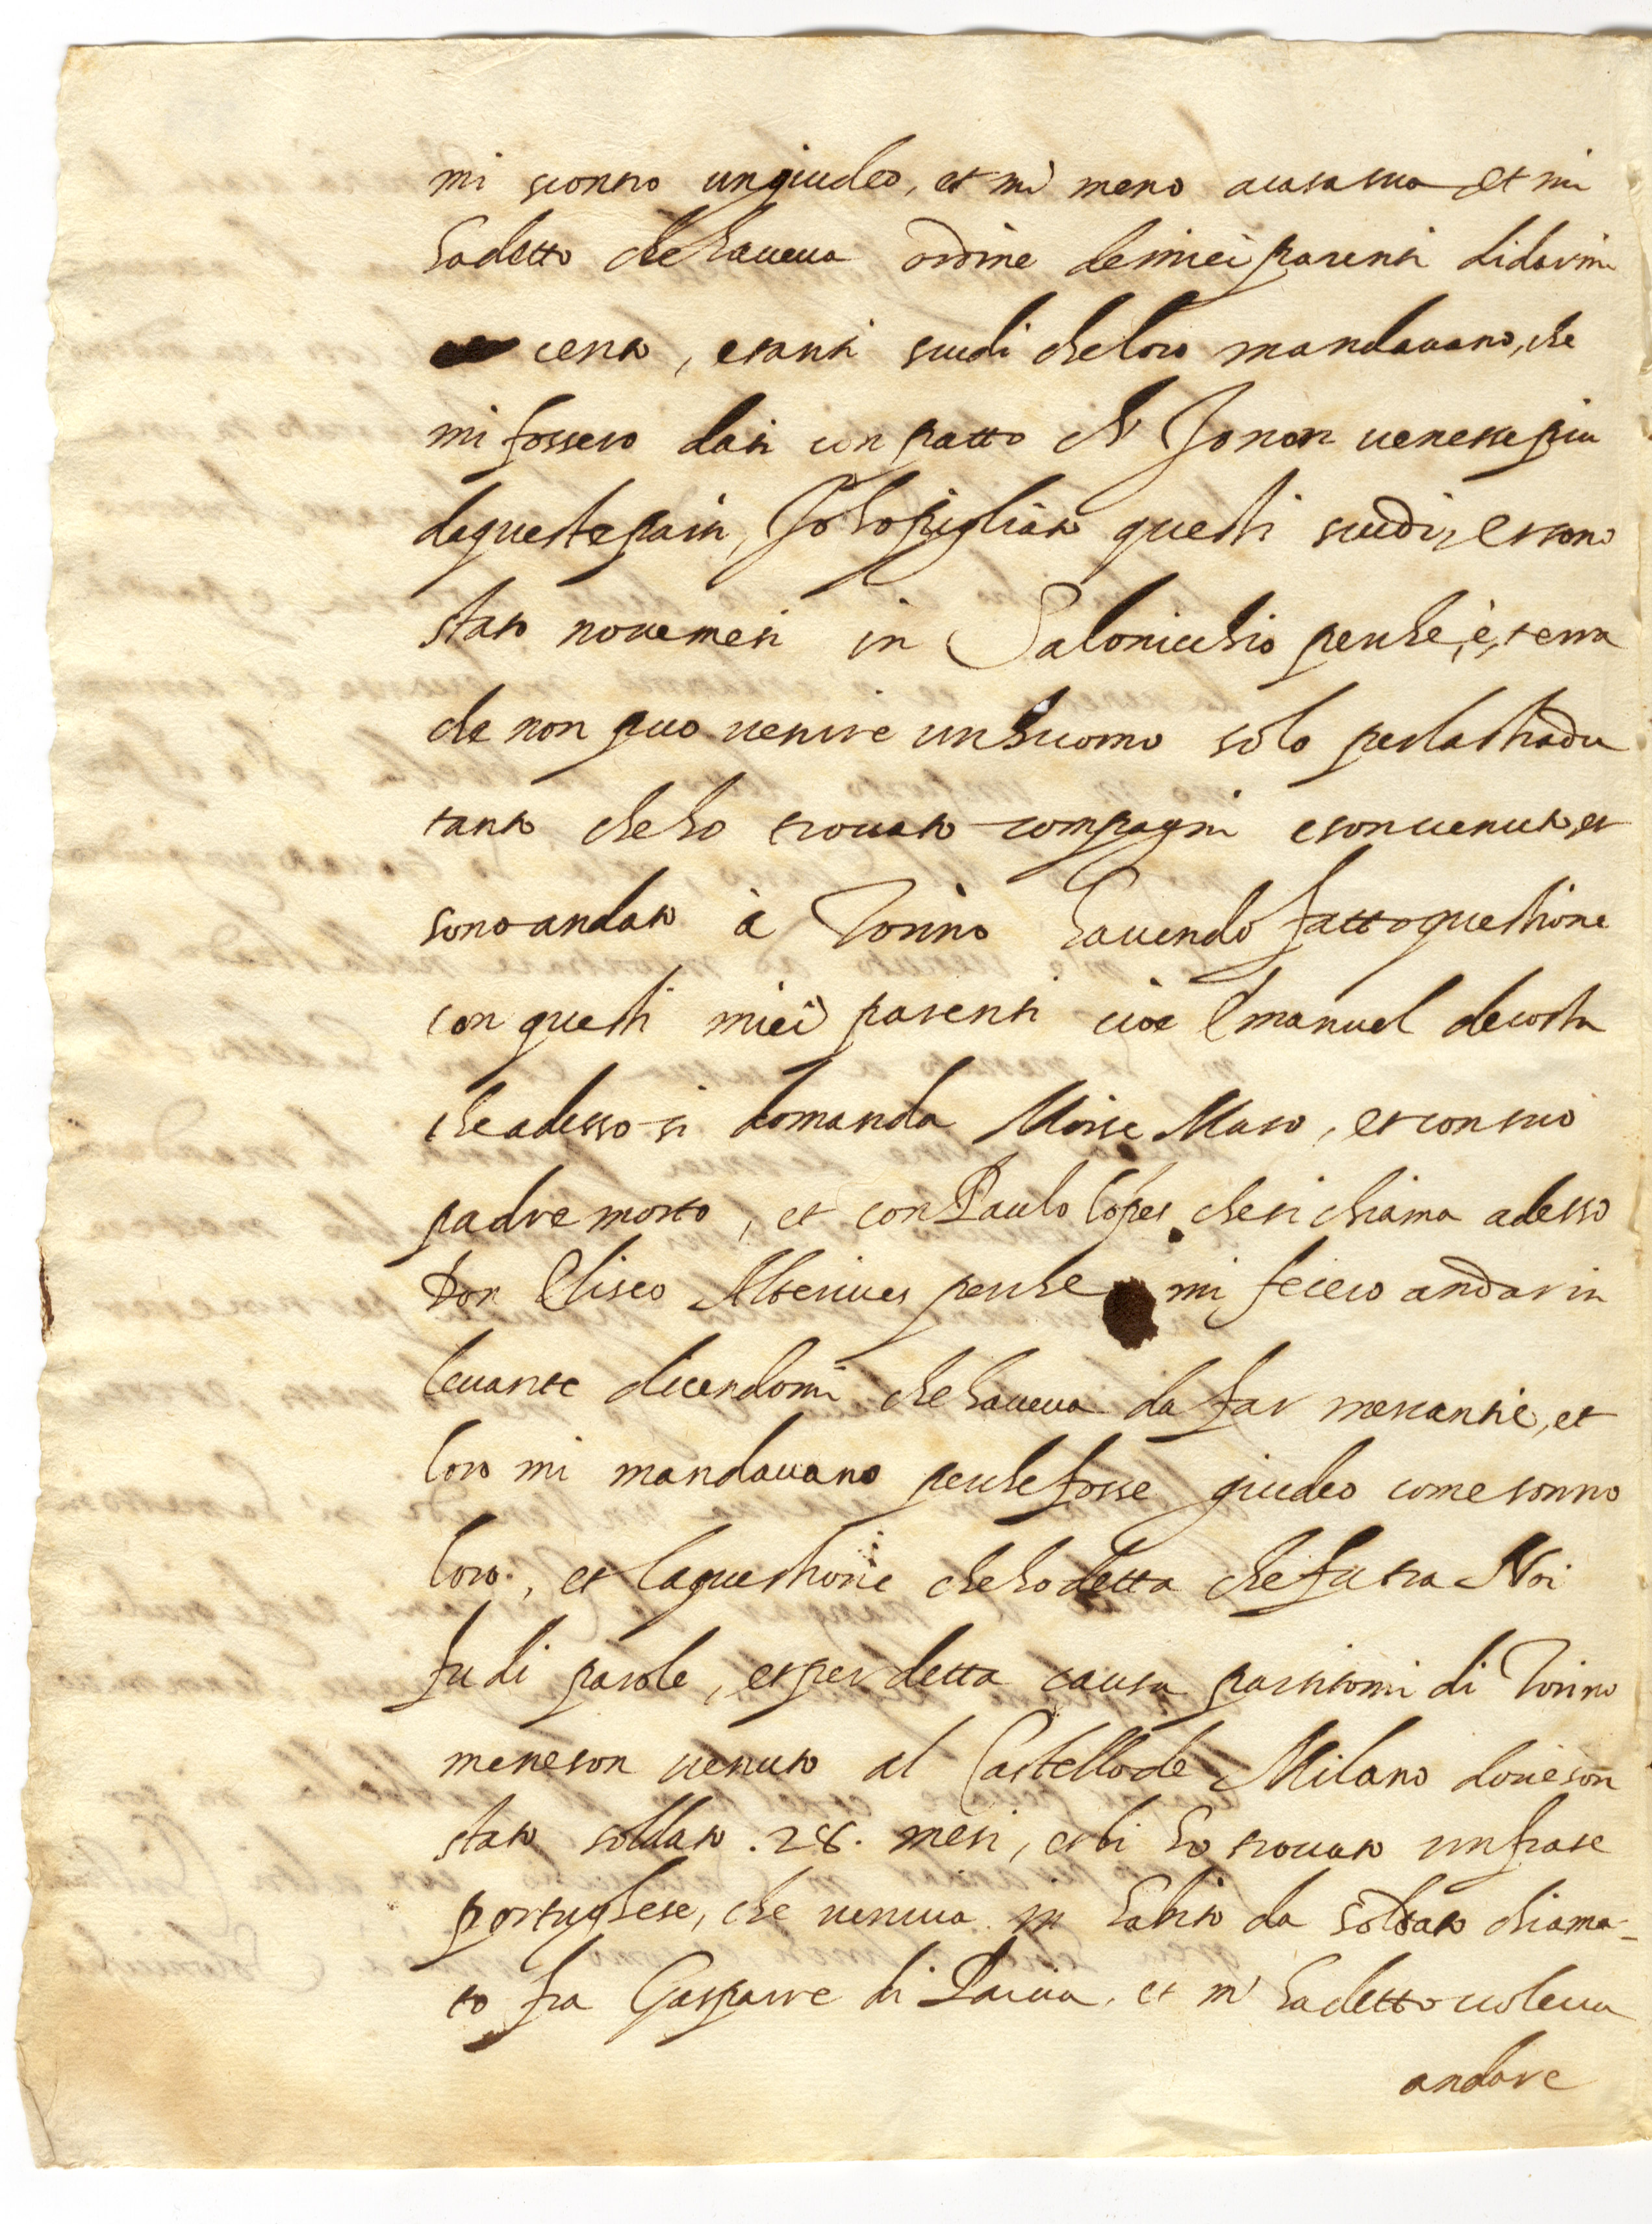 mi scontro un giudeo, et mi meno a casa sua et mi
ha detto che haueua ordine de miei parenti di darmi
cento, e tanti scudi che loro mandauano, che
mi fossero dati con patto ch' Io non uenesse piu
de queste parti, Io ho pigliato questi scudi, et sono
stato noue mesi in Salonicchio perche, è, terra
che non puo uenire un huomo solo per la strada
tanto che ho trouato compagni e son uenuto, et
sono andato à Torino hauendo fatto questione
con questi miei parenti cioe Emanuel de costa
che adesso si domanda Moise Maro, et con suo
padre morto, et con Paulo lopes che si chiama adesso
Don Eliseo perche mi fecero andar in
leuante dicendomi che haueua da far mercantie, et
loro mi mandauano perche fosse giudeo come sonno
loro., et la questione che ho detta che fu tra Noi
fu di parole, et per detta causa partitomi di Torino
mene son uenuto al Castello de Milano doue son
stato soldato .28. mesi, et li ho trouato un frate
portughese, che ueniua in habito da soldato chiama-
to fra Gasparre di Pauia, et m' ha detto uoleua
andare